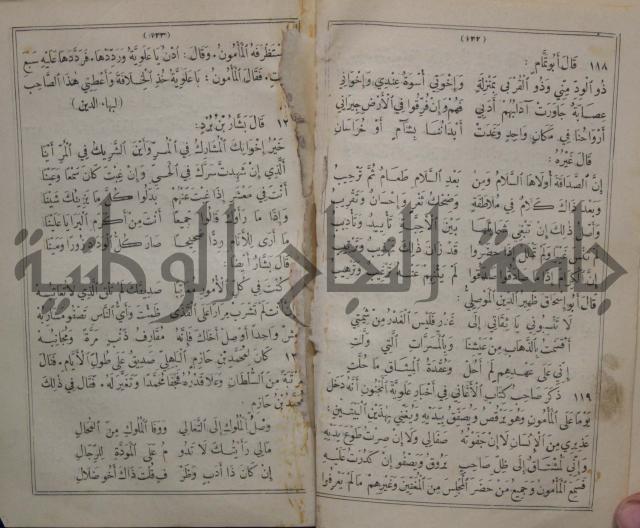 (٤٣٢)
١١٨ قَالَ أَبُو تَمَّامٍ :
ذُو الْوُدِّ مِنِّي وَذُو الْقُرْبَى بِمَنْزِلَةٍ وَإِخْوَتِي أُسْوَةٌ عِنْدِي وَإِخْوَانِي
عِصَابَةٌ جَاوَرَتْ آدَابُهُمْ أَدَبِي فَهُمْ وَإِنْ فُرِّقُوا فِي الْأَرْضِ جِيرَانِي
أَرْوَاحُنَا فِي مَكَانٍ وَاحِدٍ وَغَدَتْ أَبْدَانُنَا بِشَآمٍ أَوْ خُرَاسَانِ
قَالَ غَيْرُهُ :
إِنَّ الصَّدَاقَةَ أُولَاهَا السَّلَامُ وَمِنْ بَعْدِ السَّلَامِ طَعَامٌ ثُمَّ تَرْحِيبُ
وَبَعْدَ ذَاكَ كَلَامٌ فِي مُلَاطَفَةٍ وَضِحْكُ ثَغْرٍ وَإِحْسَانٌ وَتَقْرِيبُ
وَأَصْلُ ذٰلِكَ أَنْ تَبْقَى بَيْنَ الْأَحِبَّةِ تَأْيِيدٌ وَتَأْدِيبُ
قَالَ أَبُو إِسْحَاقَ ظَهِيرُ الدِّينِ الْمَوْصِلِيُّ :
لَا تَنْسُبُونِي يَا ثِقَاتِي إِلَى غَدْرٍ فَلَيْسَ الْغَدْرُ مِنْ شِيمَتِي
أَقْسَمْتُ بِالذَّاهِبِ مِنْ عَيْشِنَا وَبِالْمَسَرَّاتِ الَّتِي وَلَّتِ
إِنِّي عَلَى عَهْدِهِمِ لَمْ أَحُلْ وَعُقْدَةُ الْمِيثَاقِ مَا حُلَّتِ
١١٩ ذَكَرَ صَاحِبُ كِتَابِ الْأَغَانِي فِي أَخْبَارِ عَلَوِيَّةَ الْمَجْنُونِ أَنَّهُ دَخَلَ
يَوْمًا عَلَى الْمَأْمُونِ وَهُوَ يَرْقُصُ وَيُصَفِّقُ بِيَدَيْهِ وَيُغَنِّي بِهٰذَيْنِ الْبَيْتَيْنِ :
عَذِيرِي مِنَ الْإِنْسَانِ لَا إِنْ جَفَوْتُهُ صَفَا لِي وَلَا إِنْ صِرْتُ طَوْعَ يَدَيْهِ
وَإِنِّي لَمُشْتَاقٌ إِلَى ظِلِّ صَاحِبٍ يَرُوقُ وَيَصْفُو إِنْ كَدَرْتُ عَلَيْهِ
فَسَمِعَ الْمَأْمُونُ وَجَمِيعُ مَنْ حَضَرَ الْمَجْلِسَ مِنَ الْمُغَنِّينَ وَغَيْرِهِمْ مَا لَمْ يَعْرِفُوا
(٤٣٣)
الْمَأْمُونُ . وَقَالَ : اُدْنُ يَا عَلَوِيَّةُ وَرَدِّدْهَا . فَرَدَّدَهَا عَلَيْهِ سَبْعَ
فَقَالَ الْمَأْمُونُ : يَا عَلَوِيَّةُ خُذِ الْخِلَافَةَ وَأَعْطِنِي هٰذَا الصَّاحِبَ
(لبهاء الدين)
قَالَ بَشَّارُ بْنُ بُرْدٍ :
خَيْرُ إِخْوَانِكَ الْمُشَارِكُ فِي الْمُرِّ وَأَيْنَ الشَّرِيكُ فِي الْمُرِّ أَيْنَا
أَلَّذِي إِنْ شَهِدْتَ سَرَّكَ فِي الْحَيِّ وَإِنْ غِبْتَ كَانَ سَمْعًا وَعَيْنَا
أَنْتَ فِي مَعْشَرٍ إِذَا غِبْتَ عَنْهُمْ بَدَّلُوا كُلَّ مَا يَزِينُكَ شَيْنَا
وَإِذَا مَا رَأَوْكَ قَالُوا جَمِيعًا أَنْتَ مِنْ أَكْرَمِ الْبَرَايَا عَلَيْنَا
مَا أَرَى لِلْأَنَامِ وُدًّا صَحِيحًا صَارَ كُلُّ الْوِدَادِ زُورًا وَمَيْنَا
قَالَ بَشَّارٌ أَيْضًا :
كُنْتَ فِي كُلِّ الْأُمُورِ صَدِيقَكَ لَمْ تَلْقَ الَّذِي لَا تُعَاتِبُهْ
أَنْتَ لَمْ تَشْرَبْ مِرَارًا عَلَى الْقَذَى ظَمِئْتَ وَأَيُّ النَّاسِ تَصْفُو مَشَارِبُهْ
وَاحِدًا أَوْ صِلْ أَخَاكَ فَإِنَّهُ مُقَارِفُ ذَنْبٍ مَرَّةً وَمُجَانِبُهْ
كَانَ لِمُحَمَّدِ بْنِ حَازِمٍ الْبَاهِلِيِّ صَدِيقٌ عَلَى طُولِ الْأَيَّامِ . فَنَالَ
مِنَ السُّلْطَانِ وَعَلَا قَدْرُهُ فَجَفَا مُحَمَّدًا وَتَغَيَّرَ لَهُ . فَقَالَ فِي ذٰلِكَ
بْنُ حَازِمٍ
وَصْلُ الْمُلُوكِ إِلَى التَّعَالِي وَوَفَا الْمُلُوكِ مِنَ الْمُحَالِ
مَالِي رَأَيْتُكَ لَا تَدُو مُ عَلَى الْمَوَدَّةِ لِلرِّجَالِ
إِنْ كَانَ ذَا أَدَبٍ وَظَرْ فٍ قُلْتَ ذَاكَ أَخُو ضَلَالِ
جامعة النجاح الوطنية